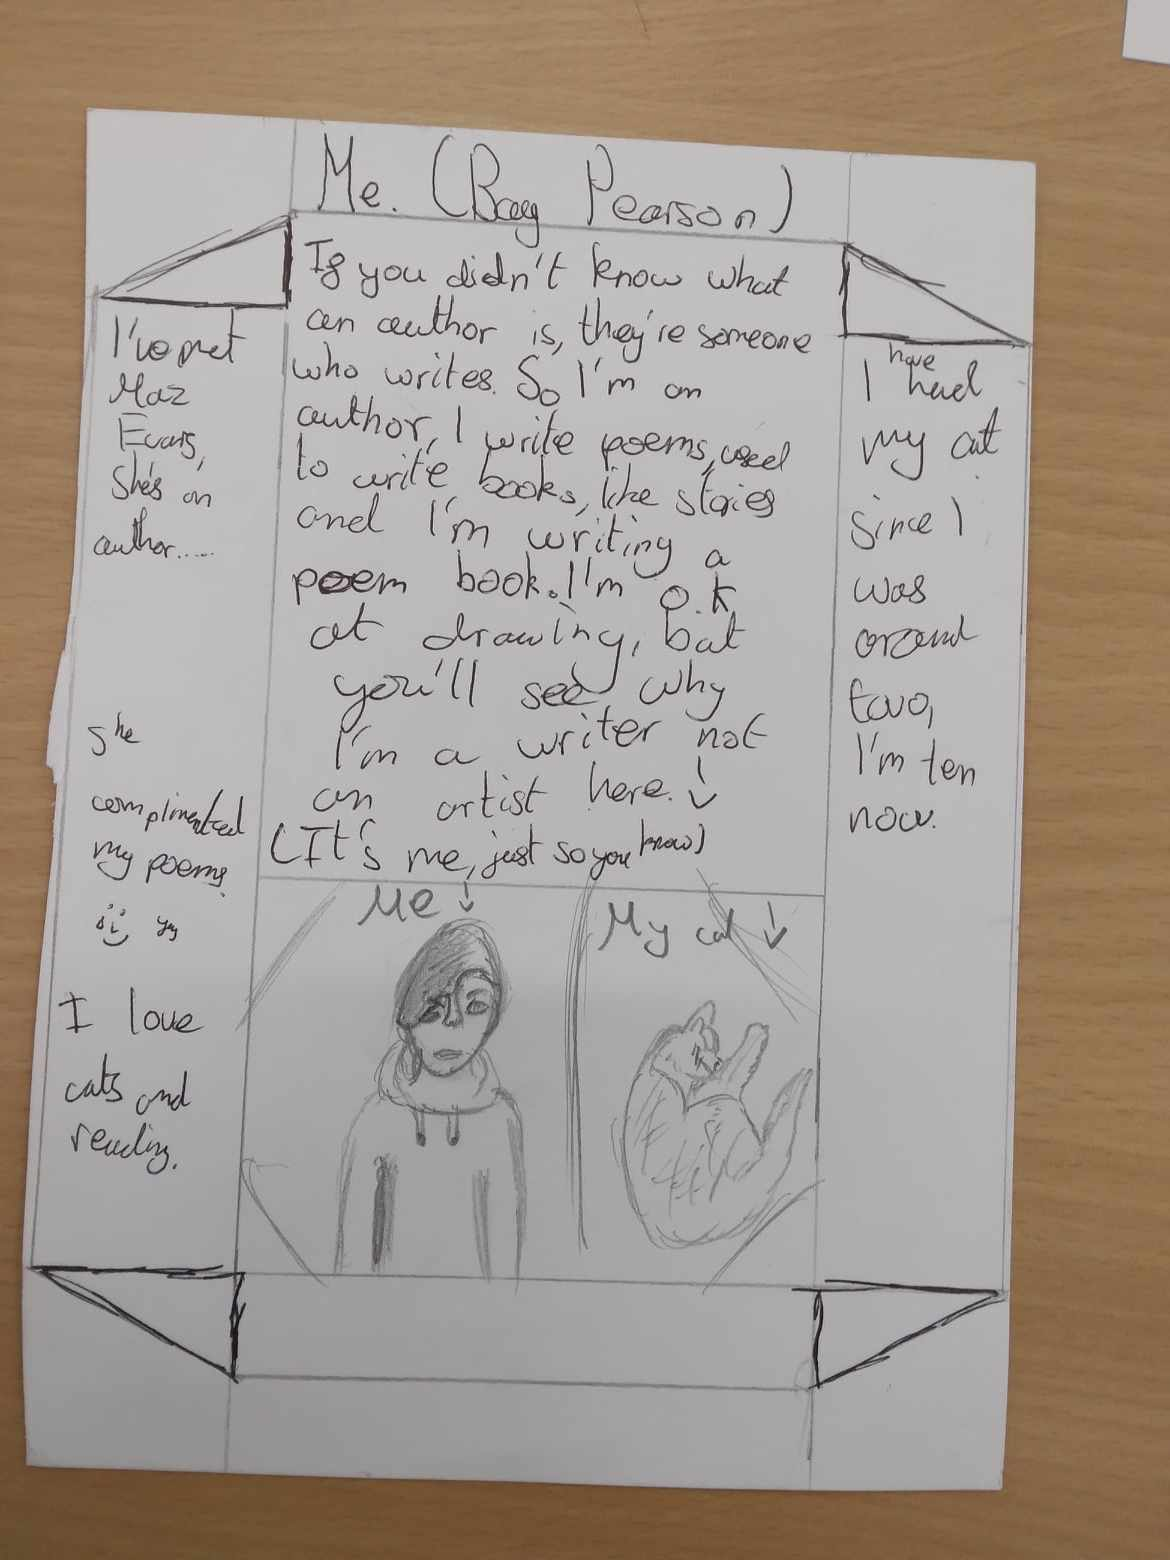 Me. (Pearson)
If you didn't know what
an author is, they're someone
who writes. So I'm an
author, I write poems, used
to write books, like stories
and I'm writing a
poem book. I'm o.k
at drawing, but
you'll see why
I'm a writer not
an artist here. ↓
(It's me, just so you know)
I've met
Maz
Evans,
she's an
author.....
she
complimented
my poems.
I love
cats and
reading.
I have had
my cat
since I
was
around
two,
I'm ten
now.
Me ↓
My cat ↓